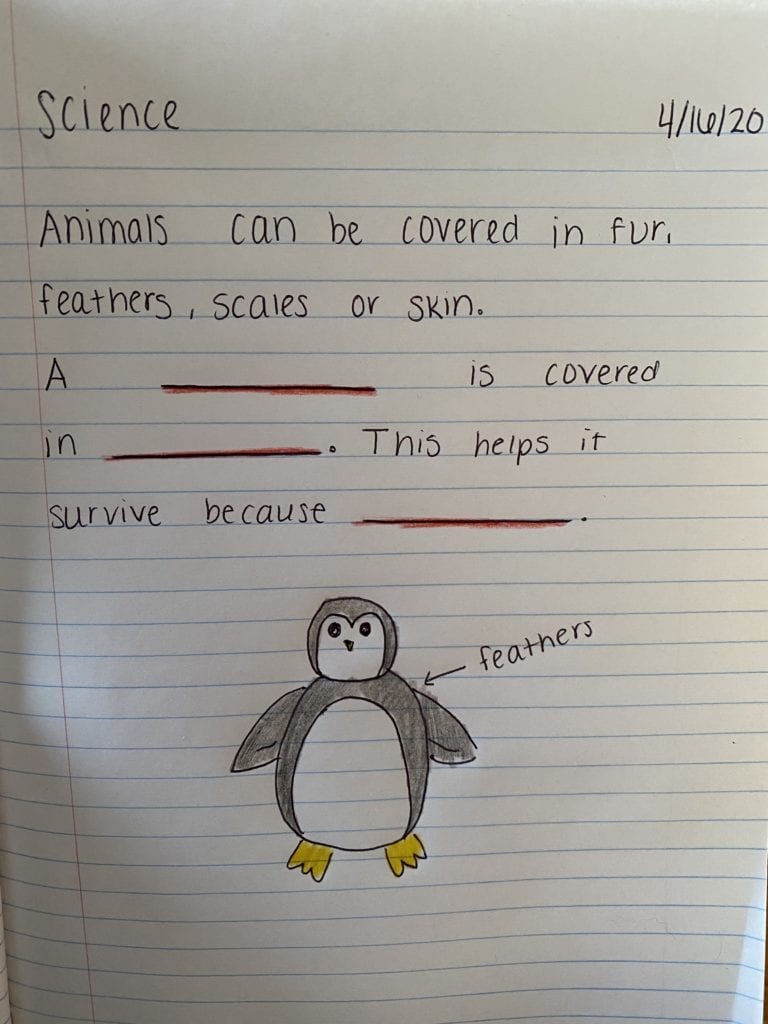 Science 4/16/20
Animals can be covered in fur,
feathers, scales or skin.
A ________ is covered
in ________. This helps it
survive because ________.
feathers